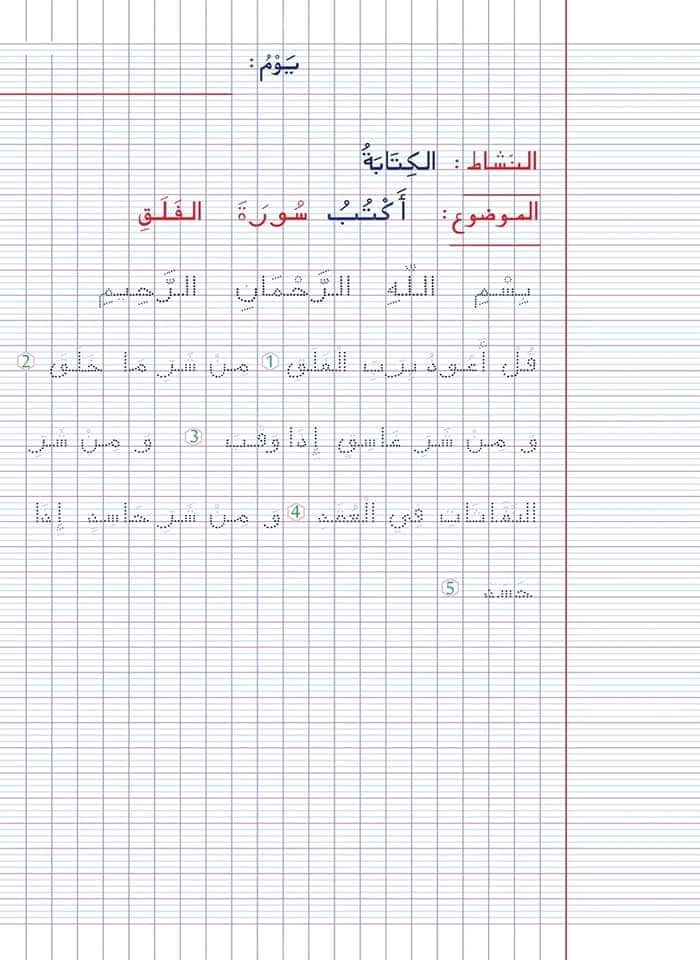 يَوْمُ :
النشاط : الكِتَابَةُ
الموضوع : أَكْتُبُ سُورَةَ الفَلَقِ
بِسْمِ اللَّهِ الرَّحْمَانِ الرَّحِيمِ
قُلْ أَعُوذُ بِرَبِّ الْفَلَقِ 1 مِنْ شَرِّ مَا خَلَقَ 2
وَ مِنْ شَرِّ غَاسِقٍ إِذَا وَقَبَ 3 وَ مِنْ شَرِّ
النَّفَّاثَاتِ فِي الْعُقَدِ 4 وَ مِنْ شَرِّ حَاسِدٍ إِذَا
حَسَدَ 5